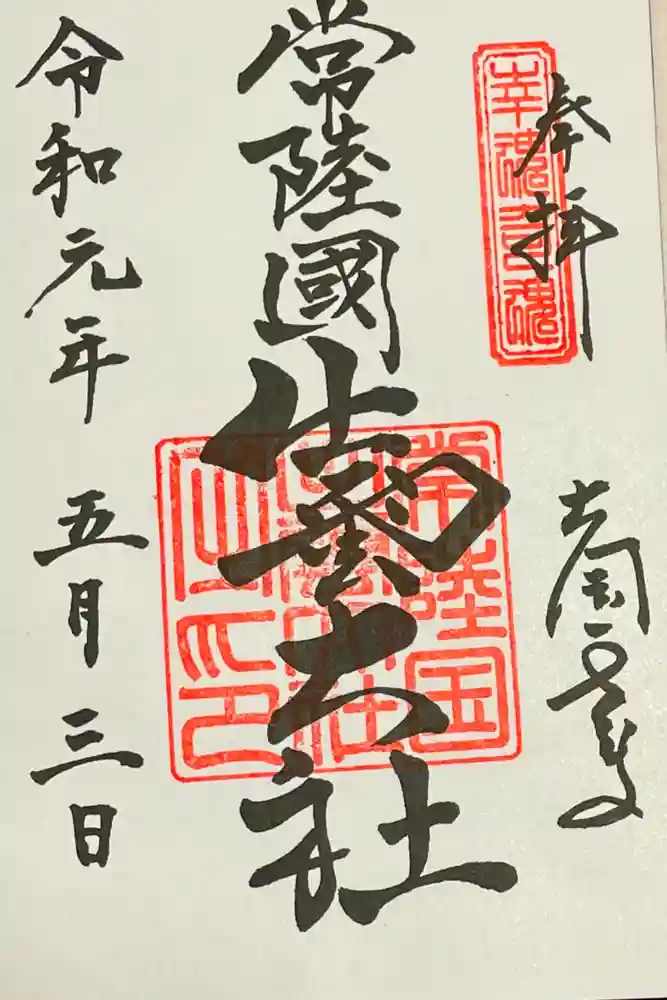 奉拝
幸魂奇魂
常陸國出雲大社
常陸国
出雲大社
之印
令和元年五月三日